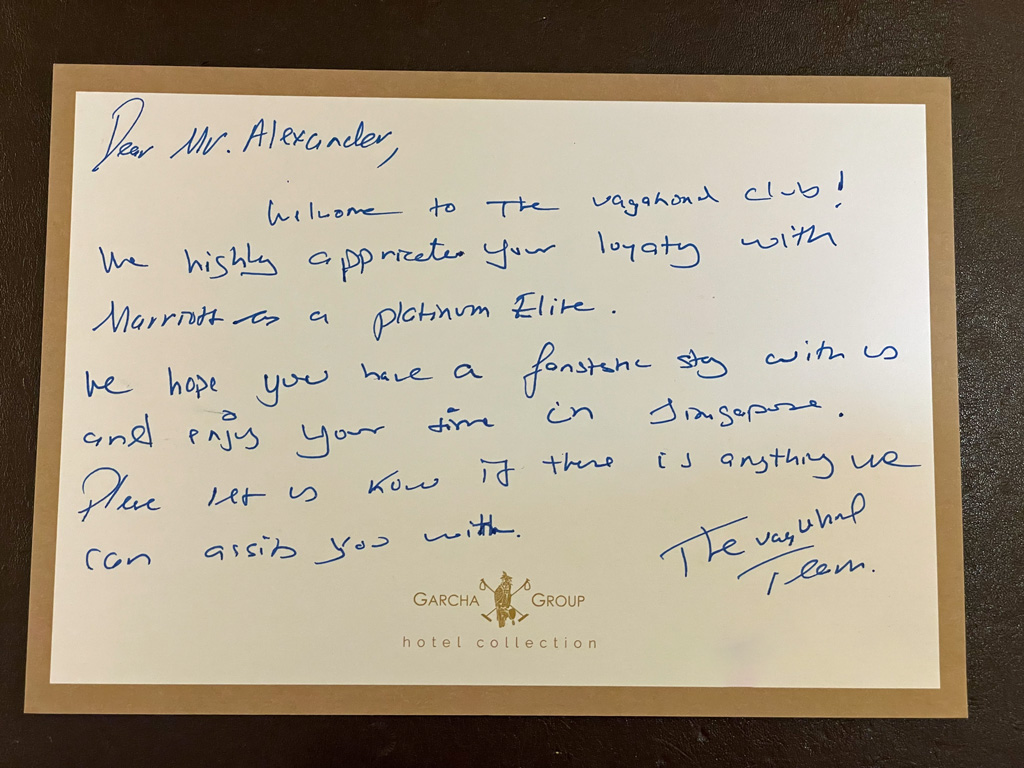 Dear Mr. Alexander,
Welcome to The vagabond club!
We highly appriciate your loyaty with
Marriott as a platinum Elite.
We hope you have a fanstatic stay with us
and enjoy your time in Singapore.
Please let us know if there is anything we
can assist you with.
The vagabond
Team.
GARCHA GROUP
hotel collection